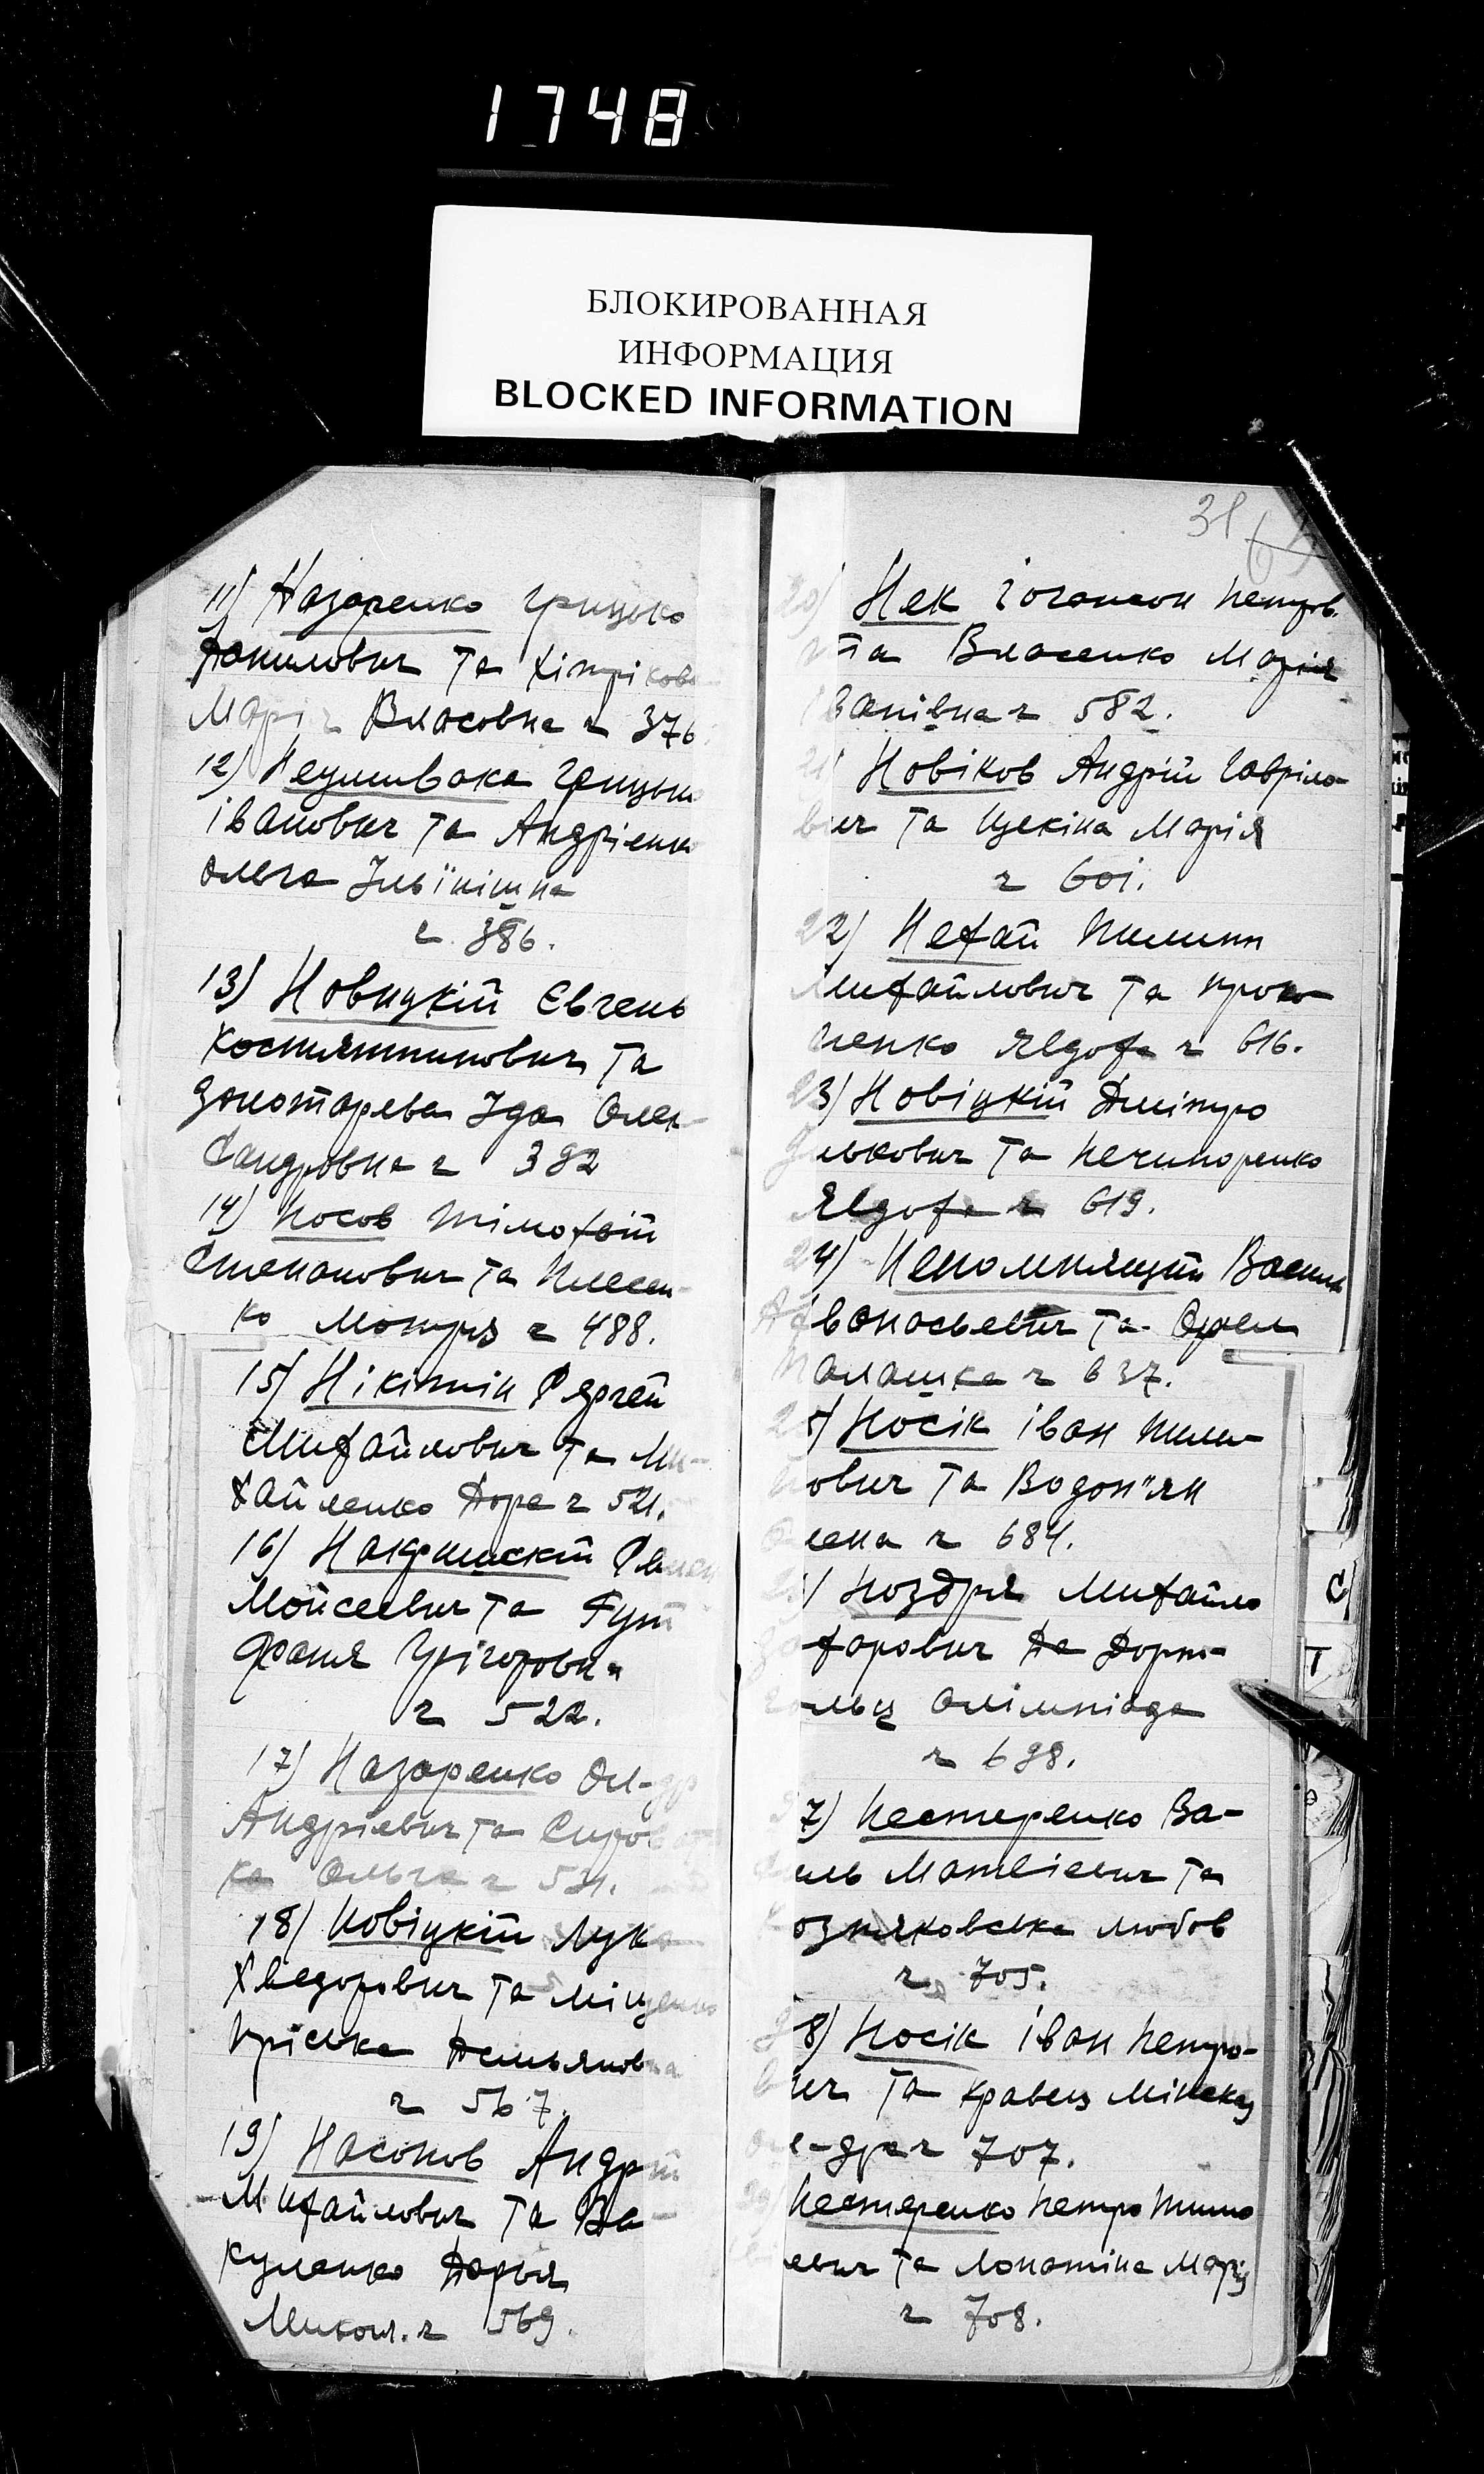 1748
БЛОКИРОВАННАЯ
ИНФОРМАЦИЯ
BLOCKED INFORMATION
11) Назаренко Грицько
Данилович та
Марія Власовна ч 376
12) Неушивака Грицько
Івановіч та Андрієнко
Ольга Ільїнішна
ч 386.
13) Новицкій Євгень
Костянтинович та
Золотарева Іда Олек-
сандровна ч 392
14) Носов Тімофій
Степанович та
ко Мотря ч 488.
15) Нікітін Сергей
Михайлович та Ми-
хайленко Дора ч 521.
16)
Мойсеевич та Гут
Фаня Грігоровна
ч 522.
17) Назаренко Ол-др
Андрієвич та Сиров
ка Ольга ч 531.
18) Новіцкій Лука
Хведорович та Міщенко
Пріська Демьяновна
ч 567.
19) Насонов Андрій
Михайлович та Ва-
куленко Дарья
Микол. ч 569.
31
20) Нек Іогансон Петров.
та Власенко Марія
Іванівна ч 582.
21) Новіков Андрій Гавріло-
вич та Щекіна Марія
ч 601.
22) Нехай Пилипп
Михайлович та Проко-
пенко Явдоха ч 616.
23) Новіцкій Дмітро
та Нечипоренко
Явдоха ч 619.
24) Непомнящий Василь
Афанасьевич та Орел
Палашка ч 637.
25) Носік Іван Пили-
пович та Водоп"ян
Олена ч 684.
26) Ноздря Михайло
Захарович та
Олімпіада
ч 698.
27) Нестеренко Ва-
силь Матвієвич та
Козняковська Любов
ч 705.
28) Носік Іван Петро-
вич та Кравец
Ол-дра ч 707.
29) Нестеренко Петро Тимо
евич та Лопатіна Марія
ч 708.